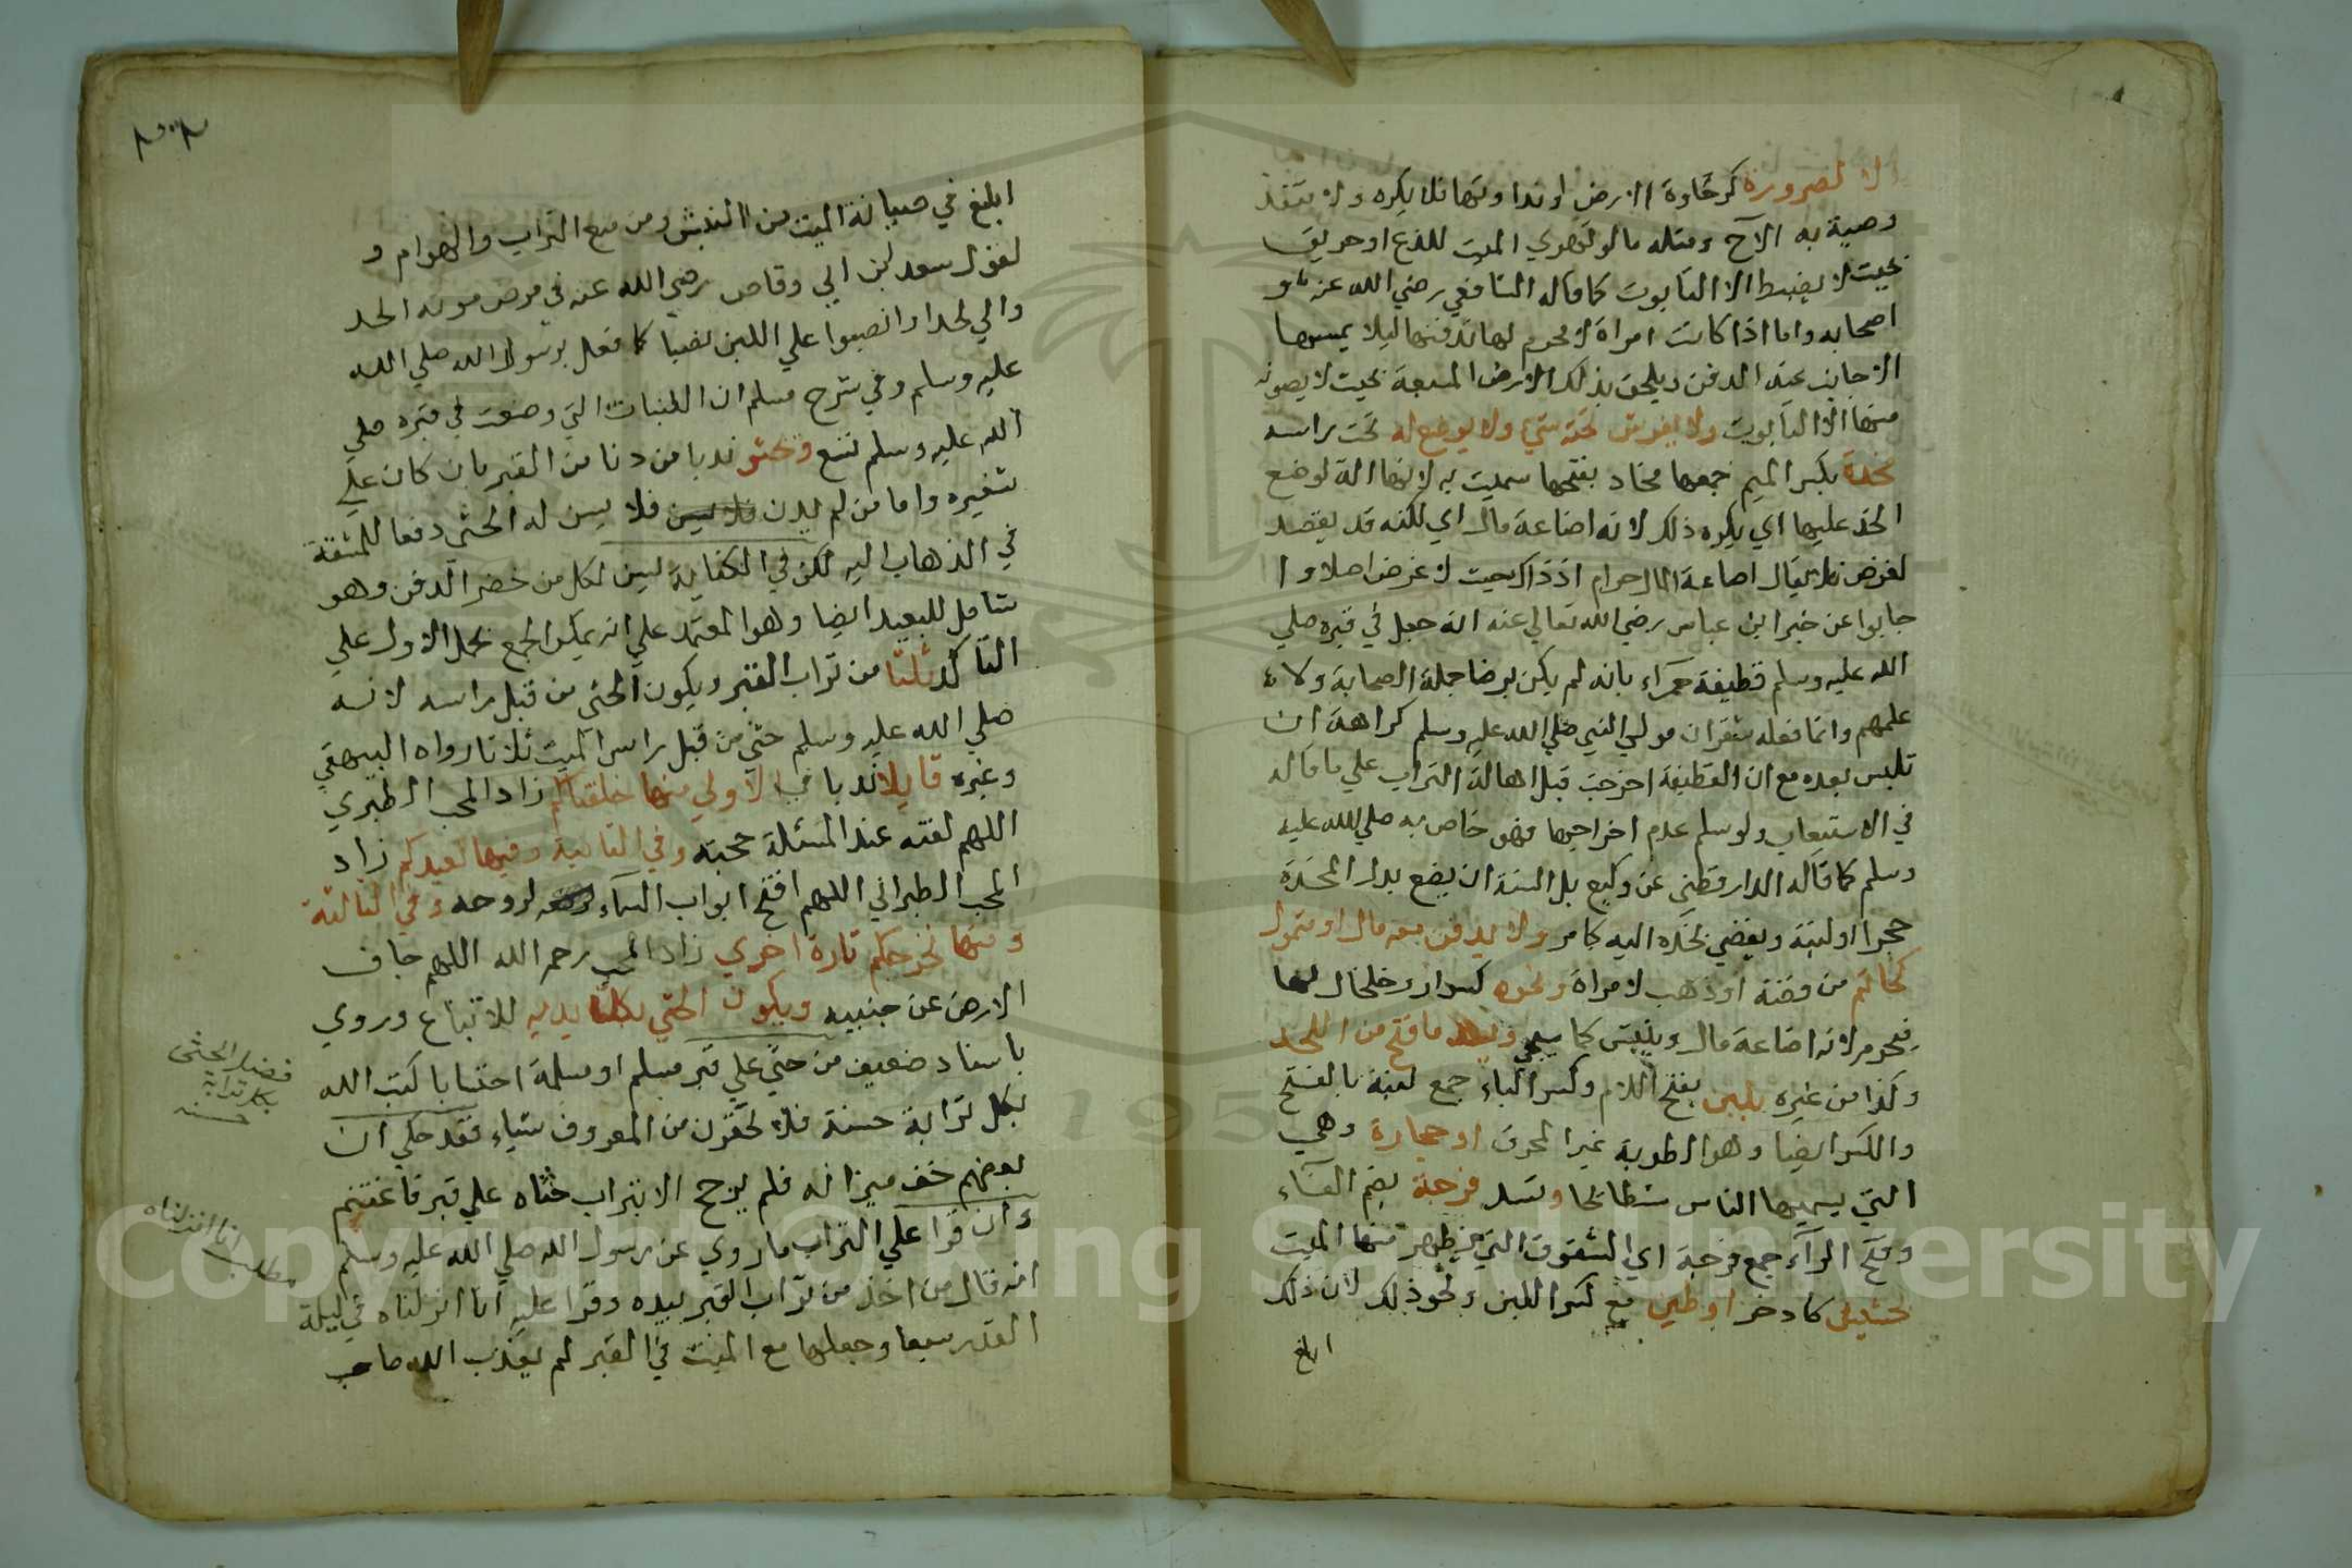 الا لضرورة كرخاوة الارض او نداوتها فلا يكره ولا تنفذ
وصية به الآح ومثله ما لو تهري الميت للذع او حريق
بحيث لا يضبط الا التابوت كما قاله الشافعي رضي الله عنه و
اصحابه واما اذا كانت امراة لا محرم لها تدفنها ليلا يمسها
الاجانب عند الدفن ويلحق بذلك الارض المسبعة بحيث لا يصونه
منها الا التابوت ولا يفرش تحته شي ولا يوضع له تحت راسه
مخدة بكسر الميم جمعها مخاد بفتحها سميت به لانها الة لوضع
الخد عليها اي يكره ذلك لانه اضاعة مال اي لكنه قد يقصد
لغرض فلا يقال اضاعة المال حرام اذ ذاك بحيث لا غرض اصلا وا
جابوا عن خبر ابن عباس رضي الله تعالي عنه انه جعل في قبره صلي
الله عليه وسلم قطيفة حمراء بانه لم يكن برضا جملة الصحابة ولا
علمهم وانما فعله شقران مولي النبي صلي الله عليه وسلم كراهة ان
تلبس بعده مع ان القطيفة اخرجت قبل اهالة التراب علي ما قاله
في الاستيعاب ولو سلم عدم اخراجها فهو خاص به صلي الله عليه
وسلم كما قاله الدارقطني عن وكيع بل السنة ان يضع بدل المخدة
حجرا او لبنة ويفضي بخده اليه كما مر ولا يدفن معه مال او متمول
كخاتم من فضة او ذهب لامراة ونحوه كسوار وخلخال لها
فيحرم لانه اضاعة مال وينبش كما سيجي ويسد ما فتح من اللحد
وكذا من غيره بلبن بفتح اللام وكسر الباء جمع لبنة بالفتح
والكسر ايضا وهو الطوبة غير المحرق او حجارة وهي
التي يسميها الناس شطائحا وتسد فرجة بضم الفاء
وفتح الرآء جمع فرجة اي الشقوق التي يظهر منها الميت
بحشيش كاذخر او طين مع كسر اللبن ونحو ذلك لان ذلك
ابلغ
ابلغ في صيانة الميت من النبش ومن منع التراب والهوام و
لقول سعد ابن ابي وقاص رضي الله عنه في مرض موته الحد
والي لحدا وانصبوا علي اللبن نصبا كما فعل برسول الله صلي الله
عليه وسلم وفي شرح مسلم ان اللبنات التي وضعت في قبره صلي
الله عليه وسلم تسع ويحثو ندبا من دنا من القبر بان كان علي
شفيره واما من لم يدن فلا يسن فلا يسن له الحثي دفعا للمشقة
في الذهاب اليه لكن في الكفاية يسن لكل من حضر الدفن وهو
شامل للبعيد ايضا وهو المعتمد علي انه يمكن الجمع بحمل الاول علي
التاكد ثلثا من تراب القبر ويكون الحثي من قبل راسه لانه
صلي الله عليه وسلم حثي من قبل راس الميت ثلاثا رواه البيهقي
وغيره قايلا ندبا في الاولي منها خلقناكم زاد المحب الطبري
اللهم لقنه عند المسئلة حجته وفي الثانية وفيها نعيدكم زاد
المحب الطبراني اللهم افتح ابواب السمآء لروحه وفي الثالثة
ومنها نخرجكم تارة اخري زاد المحب رحمه الله اللهم جاف
الارض عن جنبيه ويكون الحثي بكلتا يديه للاتباع وروي
باسناد ضعيف من حثي علي قبر مسلم او مسلمة احتسابا كتب الله
بكل ترابة حسنة فلا تحقرن من المعروف شياء فقد حكي ان
بعضهم خف ميزانه فلم يرجح الا بتراب حثاه علي قبر فاغتنم
وان قرا علي التراب ما روي عن رسول الله صلي الله عليه وسلم
انه قال من اخذ من تراب القبر بيده وقرا عليه انا انزلناه في ليلة
القدر سبعا وجعلها مع الميت في القبر لم يعذب الله صاحب
فضل الحثي
بكل ترابة
حسنة
مطلب انا انزلناه
Copyright © King Saud University
1957